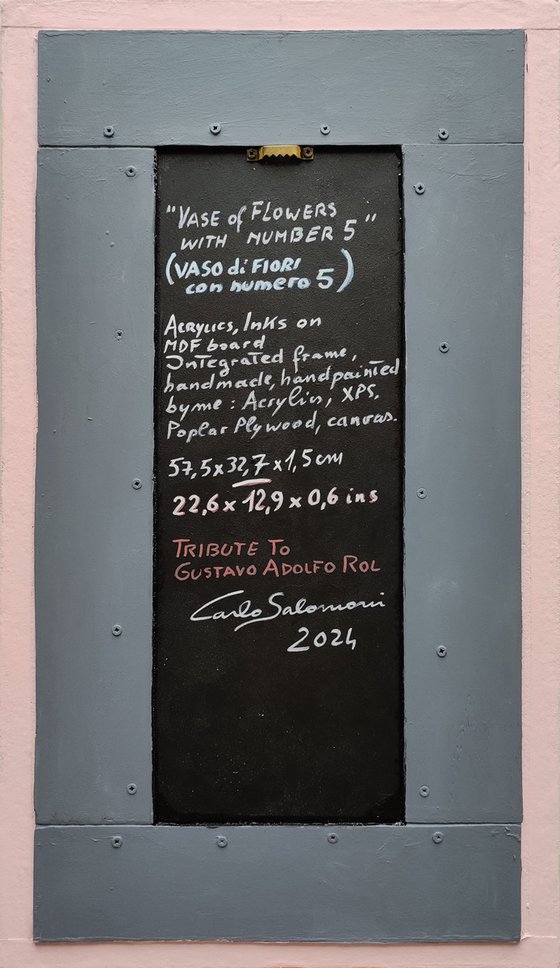 "VASE of FLOWERS
WITH NUMBER 5"
(VASO di FIORI
con numero 5)
ACRYLICS, INKS on
MDF board
INTEGRATED frame,
handmade, handpainted
by me: Acrylics, XPS,
Poplar Plywood, canvas.
57,5x32,7x1,5cm
22,6 x 12,9 x 0,6 ins
TRIBUTE TO
GUSTAVO ADOLFO ROL
Carlo Salomoni
2024